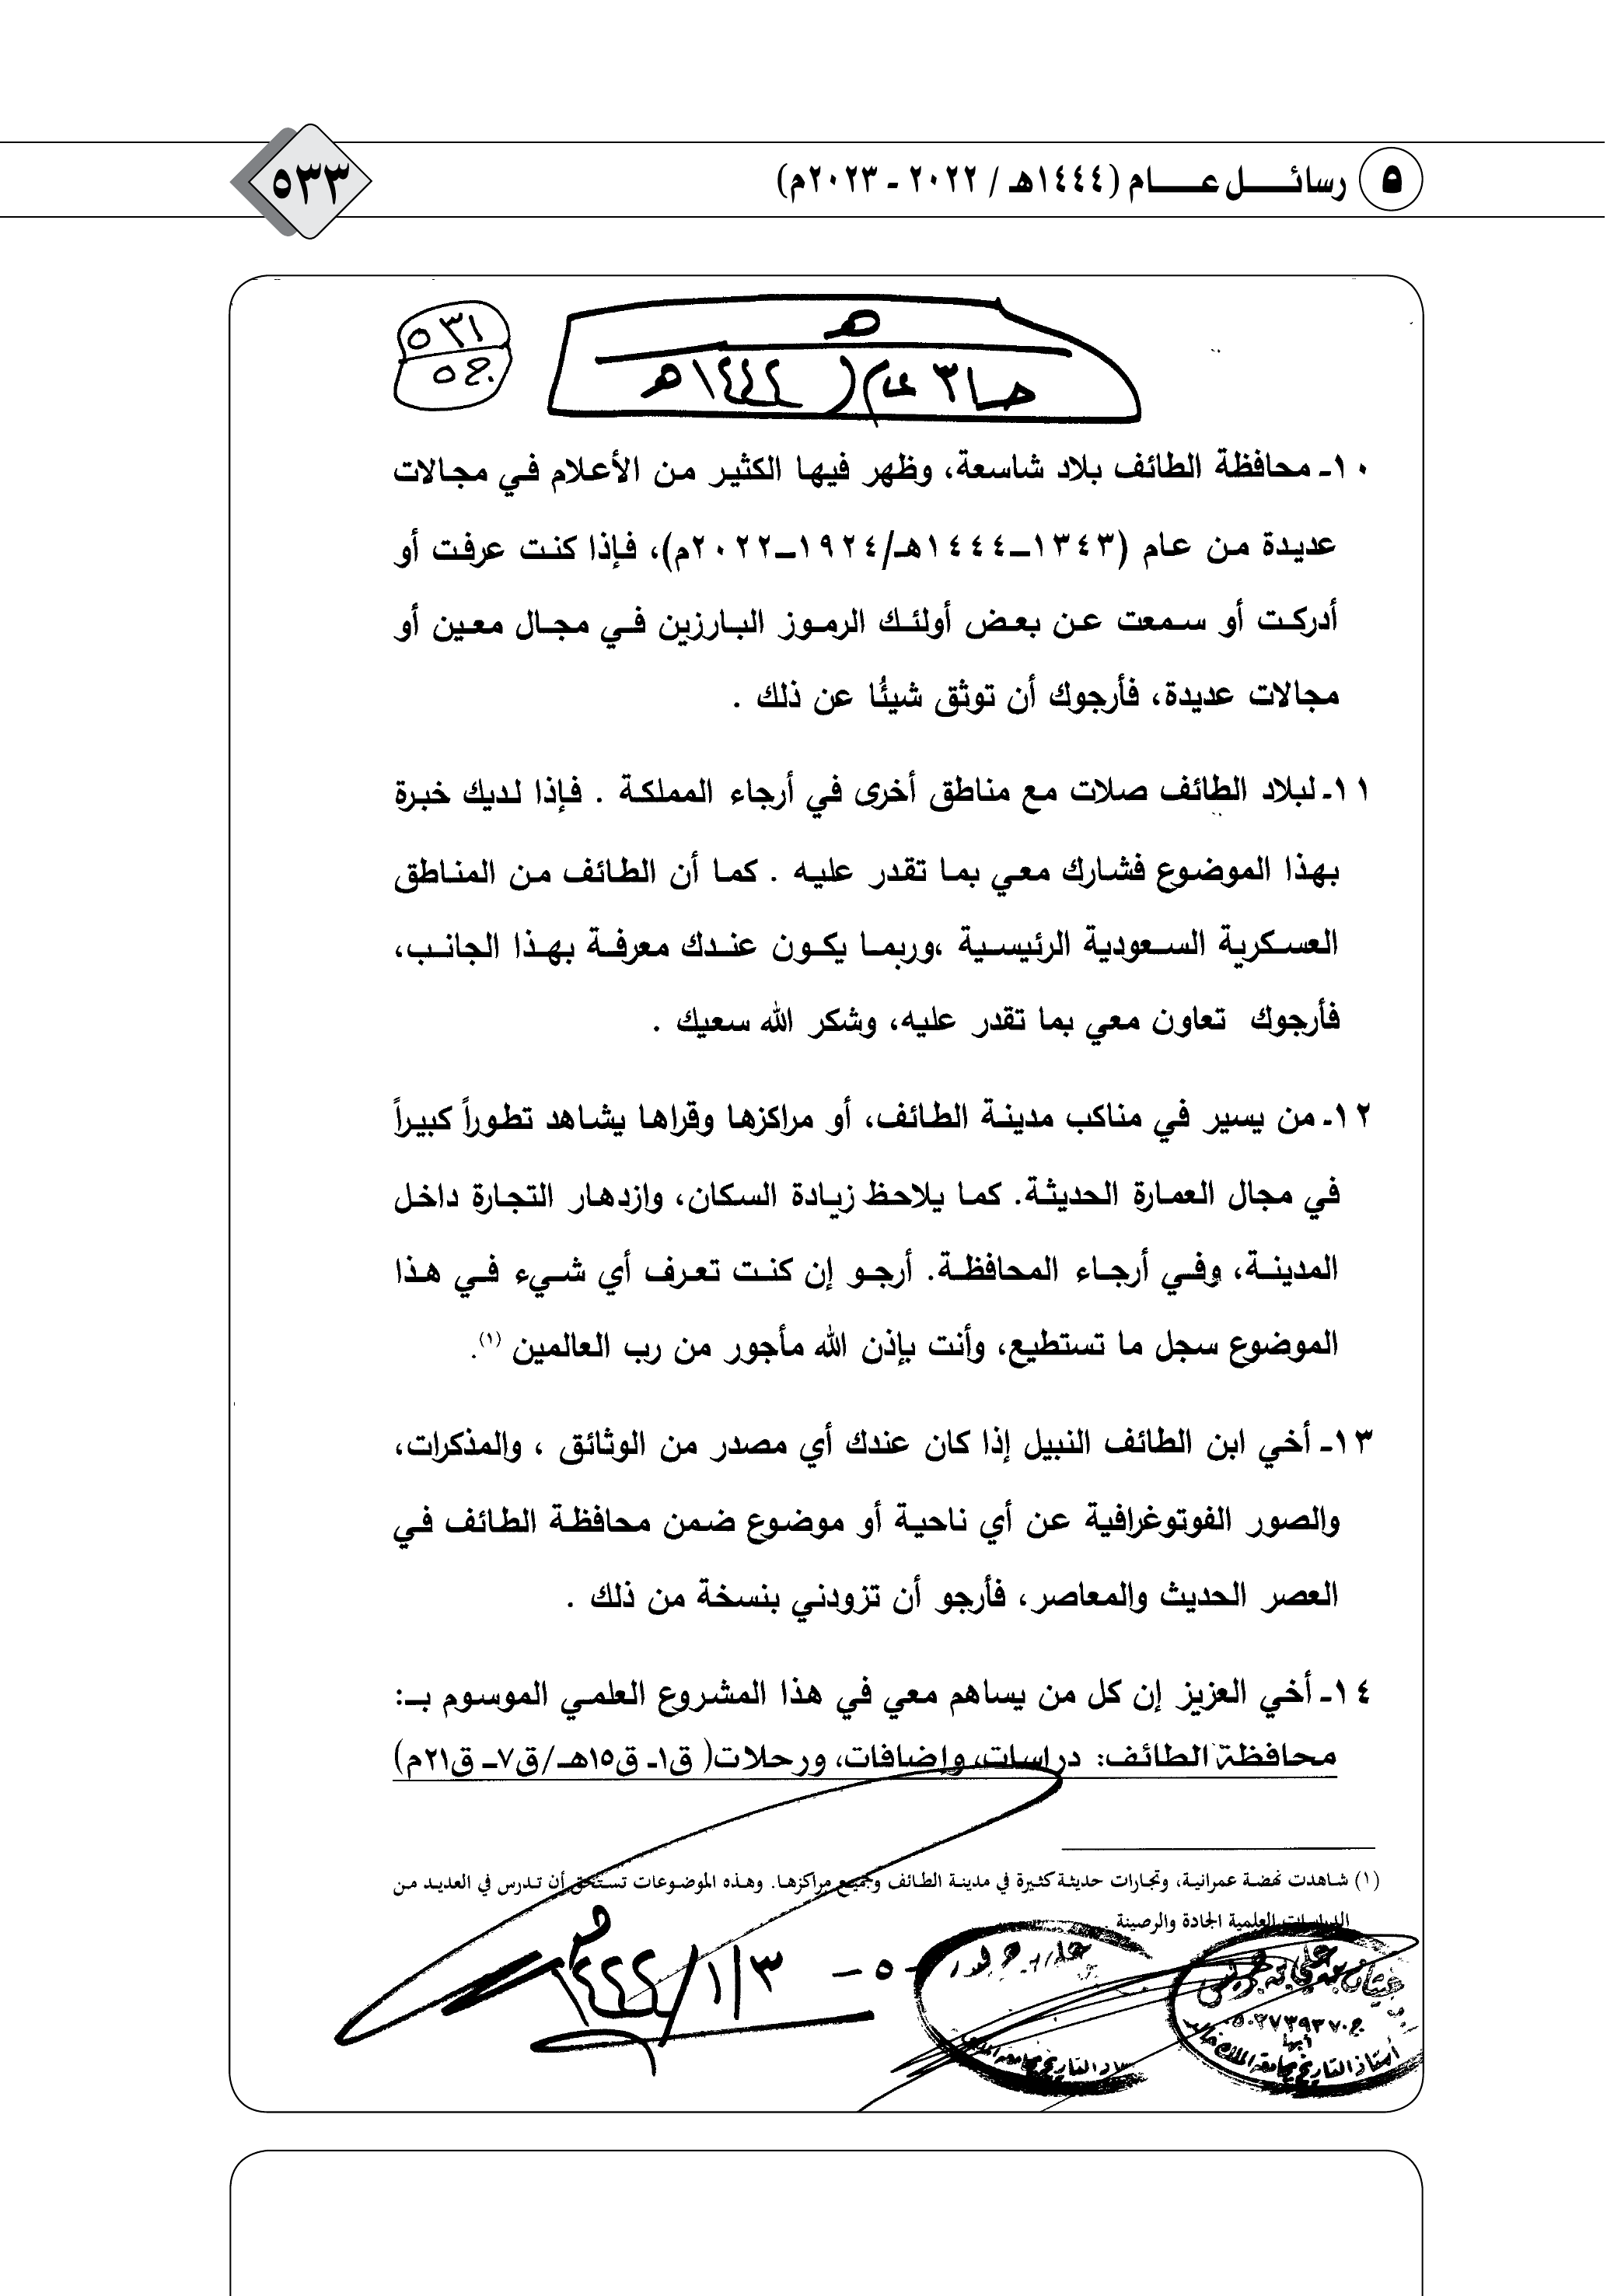 ٥ رسائل عام (١٤٤٤هـ / ٢٠٢٢ - ٢٠٢٣م)
٥٣٣
هـ
٥٣١
ج٥
١٠ـ محافظة الطائف بلاد شاسعة، وظهر فيها الكثير من الأعلام في مجالات
عديدة من عام (١٣٤٣–١٤٤٤هـ/١٩٢٤–٢٠٢٢م)، فإذا كنت عرفت أو
أدركت أو سمعت عن بعض أولئك الرموز البارزين في مجال معين أو
مجالات عديدة، فأرجوك أن توثق شيئًا عن ذلك .
١١ـ لبلاد الطائف صلات مع مناطق أخرى في أرجاء المملكة . فإذا لديك خبرة
بهذا الموضوع فشارك معي بما تقدر عليه . كما أن الطائف من المناطق
العسكرية السعودية الرئيسية ،وربما يكون عندك معرفة بهذا الجانب،
فأرجوك تعاون معي بما تقدر عليه، وشكر الله سعيك .
١٢ـ من يسير في مناكب مدينة الطائف، أو مراكزها وقراها يشاهد تطوراً كبيراً
في مجال العمارة الحديثة. كما يلاحظ زيادة السكان، وازدهار التجارة داخل
المدينة، وفي أرجاء المحافظة. أرجو إن كنت تعرف أي شيء في هذا
الموضوع سجل ما تستطيع، وأنت بإذن الله مأجور من رب العالمين (١).
١٣ـ أخي ابن الطائف النبيل إذا كان عندك أي مصدر من الوثائق ، والمذكرات،
والصور الفوتوغرافية عن أي ناحية أو موضوع ضمن محافظة الطائف في
العصر الحديث والمعاصر، فأرجو أن تزودني بنسخة من ذلك .
١٤ـ أخي العزيز إن كل من يساهم معي في هذا المشروع العلمي الموسوم بـ:
محافظة الطائف: دراسات، وإضافات، ورحلات( ق١ـ ق١٥هـ/ق٧ـ ق٢١م)
(١) شاهدت نهضة عمرانية، وتجارات حديثة كثيرة في مدينة الطائف وجميع مراكزها. وهذه الموضوعات تستحق أن تدرس في العديد من
الدراسات العلمية الجادة والرصينة
- ٥ -
٣/١/١٤٤٤
أبها
أستاذ التاريخ بجامعة الملك خالد